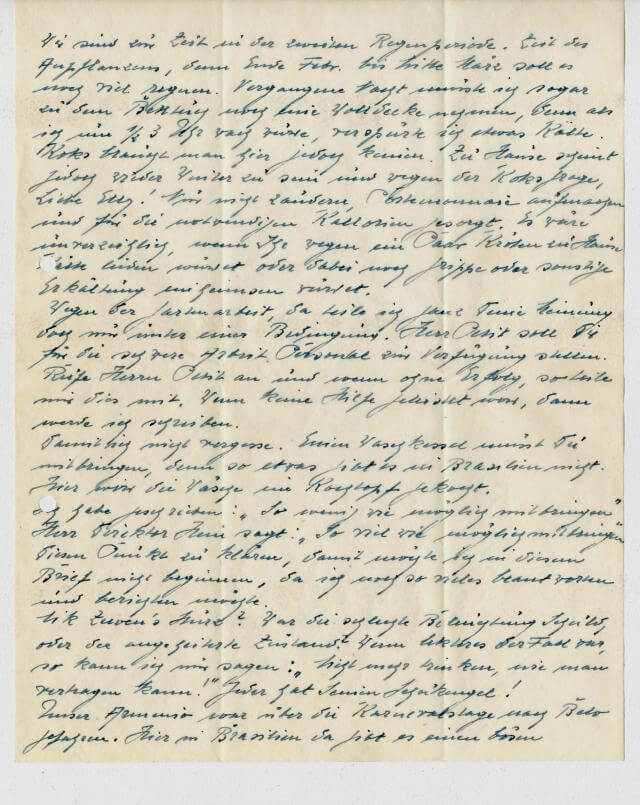 Wir sind zur Zeit in der zweiten Regenperiode. Zeit des
Anpflanzens, denn Ende Febr. bis Mitte März soll es
noch viel regnen. Vergangene Nacht musste ich sogar
zu dem Bettuch noch eine Wolldecke nehmen, denn als
ich um 1/2 3 Uhr wach würde, verspürte ich etwas Kälte.
Koks braucht man hier jedoch keinen. Zu Hause scheint
jedoch wieder Winter zu sein und wegen der Koksfrage,
Liebe Elly! Nur nicht zaudern, Portemonnaie aufmachen
und für die notwendigen Kallorien gesorgt. Es wäre
unverzeihlich, wenn Ihr wegen ein Paar Kröten zu Hause
Kälte leiden würdet oder dabei noch Grippe oder sonstige
Erkältung einheimsen würdet.
Wegen der Gartenarbeit, da teile ich ganz Deine Meinung
doch nur unter einer Bedingung. Herr Petit soll Dir
für die schwere Arbeit Personal zur Verfügung stellen.
Rufe Herrn Petit an und wenn ohne Erfolg, so teile
mir dies mit. Wenn keine Hilfe geleistet wird, dann
werde ich schreiben.
Damit ich nicht vergesse. Einen Waschkessel musst Du
mitbringen, denn so etwas gibt es in Brasilien nicht.
Hier wird die Wäsche im Kochtopf gekocht.
Ich habe geschrieben: „So wenig wie möglich mitbringen"
Herr Direktor Hein sagt: „So viel wie möglich mitbringen"
Diesen Punkt zu klären, damit möchte ich in diesem
Brief nicht beginnen, da ich noch so vieles beantworten
und berichten möchte.
Nik Zuven's Sturz? War die schlechte Beleuchtung Schuld,
oder der angeheiterte Zustand? Wenn letzteres der Fall war,
so kann ich nur sagen: „Nicht mehr trinken, wie man
vertragen kann!" Jeder hat seinen Schutzengel!
Unser Armenio war über die Karnevalstage nach Belo
gefahren. Hier in Brasilien da gibt es einen bösen